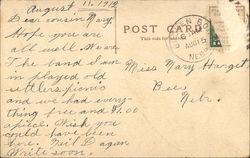 August 11. 1912
Dear cousin Mary
Hope you are
all well. We are.
The band
in played old
settlers picnic
and we had every-
thing free and $1.00
apiece. Wish you
could have been
here.
Write soon.
POST CARD
Miss Mary
Bee
Nebr.
AUG 15
NEB